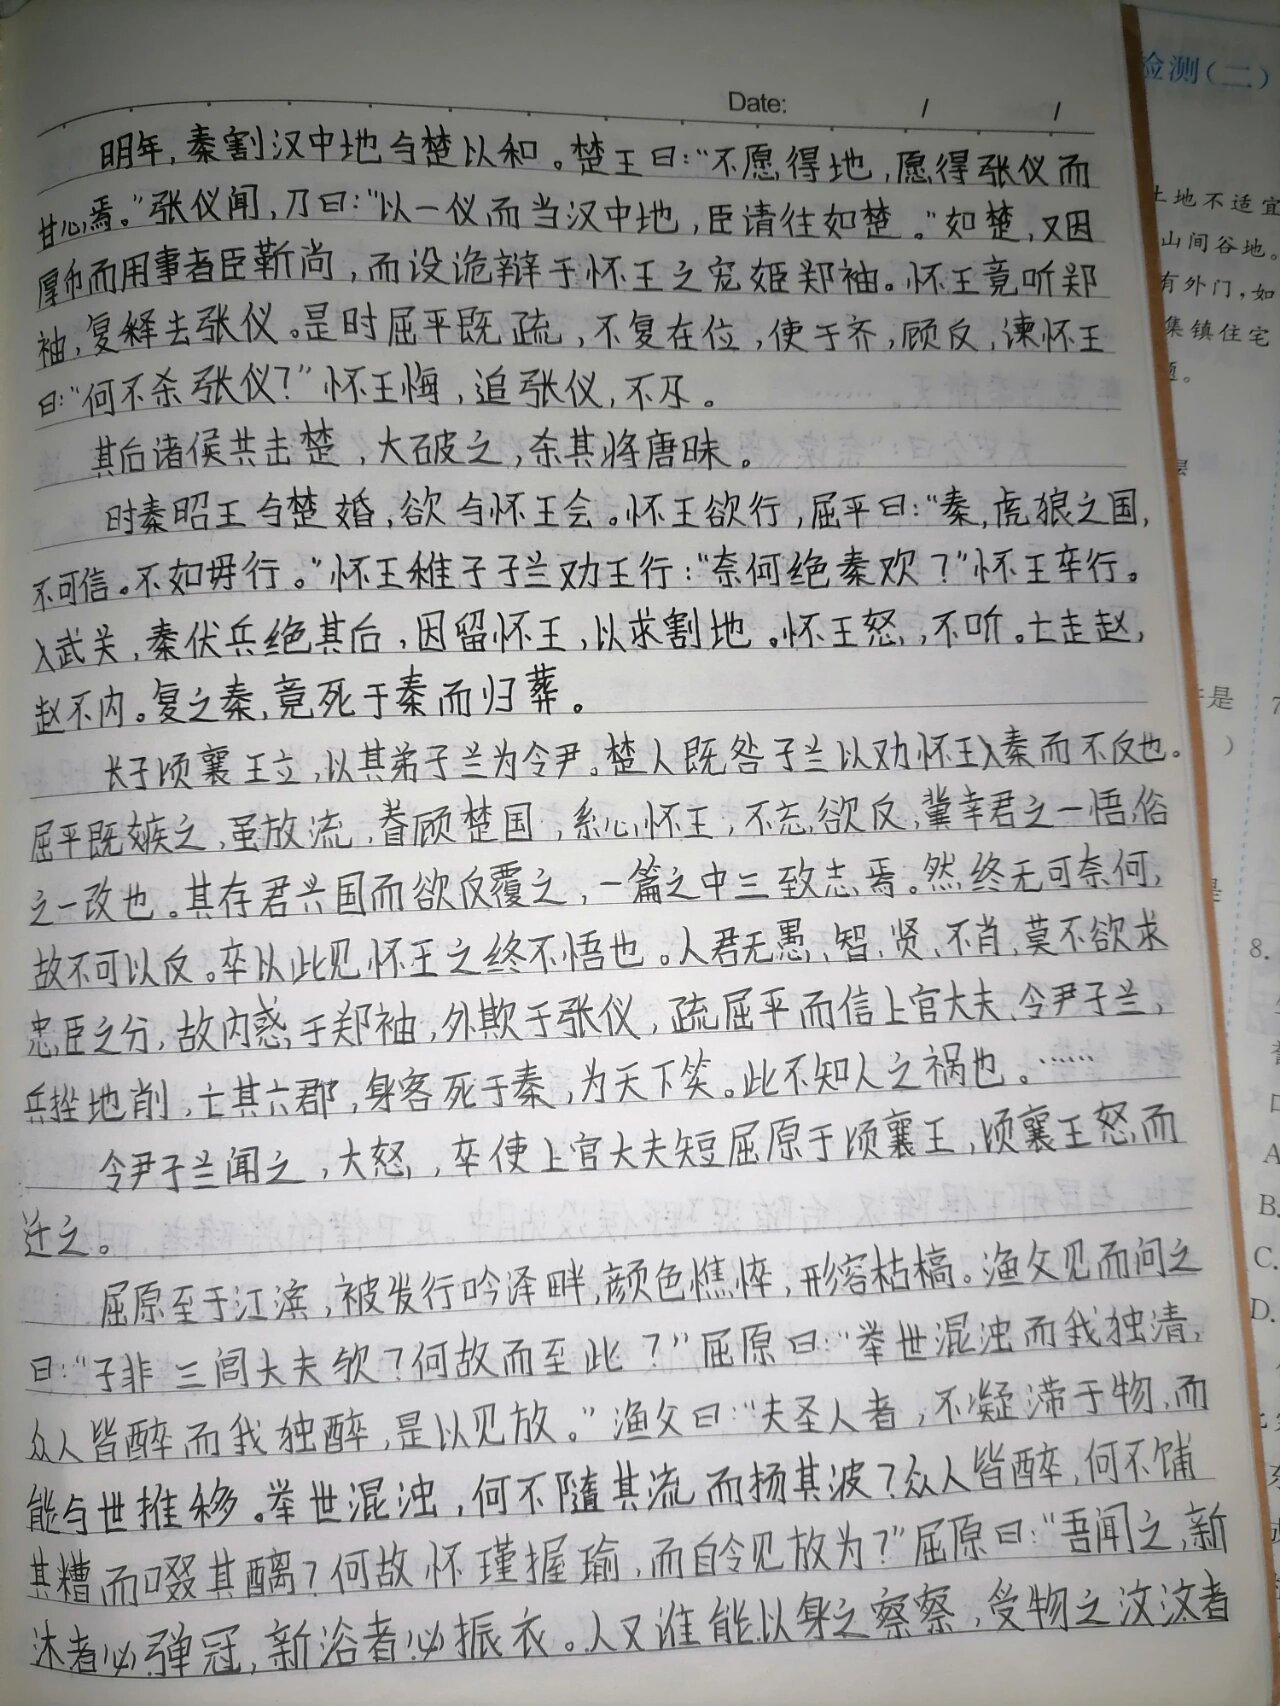 Date: / /
明年,秦割汉中地与楚以和。楚王曰:“不愿得地,愿得张仪而
甘心焉。”张仪闻,乃曰:“以一仪而当汉中地,臣请往如楚。”如楚,又因
厚币而用事者臣靳尚,而设诡辩于怀王之宠姬郑袖。怀王竟听郑
袖,复释去张仪。是时屈平既疏,不复在位,使于齐,顾反,谏怀王
曰:“何不杀张仪?”怀王悔,追张仪,不及。
其后诸侯共击楚,大破之,杀其将唐眛。
时秦昭王与楚婚,欲与怀王会。怀王欲行,屈平曰:“秦,虎狼之国,
不可信。不如毋行。”怀王稚子子兰劝王行:“奈何绝秦欢?”怀王卒行。
入武关,秦伏兵绝其后,因留怀王,以求割地。怀王怒,不听。亡走赵,
赵不内。复之秦,竟死于秦而归葬。
长子顷襄王立,以其弟子兰为令尹。楚人既咎子兰以劝怀王入秦而不反也。
屈平既嫉之,虽放流,眷顾楚国,系心怀王,不忘欲反,冀幸君之一悟,俗
之一改也。其存君兴国而欲反覆之,一篇之中三致志焉。然终无可奈何,
故不可以反。卒以此见怀王之终不悟也。人君无愚、智、贤、不肖,莫不欲求
忠臣之分,故内惑于郑袖,外欺于张仪,疏屈平而信上官大夫、令尹子兰,
兵挫地削,亡其六郡,身客死于秦,为天下笑。此不知人之祸也。……
令尹子兰闻之,大怒,卒使上官大夫短屈原于顷襄王,顷襄王怒而
迁之。
屈原至于江滨,被发行吟泽畔,颜色憔悴,形容枯槁。渔父见而问之
曰:“子非三闾大夫欤?何故而至此?”屈原曰:“举世混浊而我独清,
众人皆醉而我独醉,是以见放。”渔父曰:“夫圣人者,不凝滞于物,而
能与世推移。举世混浊,何不随其流而扬其波?众人皆醉,何不餔
其糟而啜其醨?何故怀瑾握瑜,而自令见放为?”屈原曰:“吾闻之,新
沐者必弹冠,新浴者必振衣。人又谁能以身之察察,受物之汶汶者
检测(二)
土地不适宜
山间谷地。
有外门,如
集镇住宅
题。
是
)
8.
A
B.
C.
D.